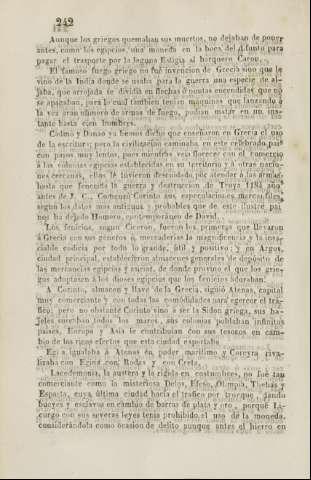 242
Aunque los griegos quemaban sus muertos, no dejaban de poner
antes, como los egipcios, una moneda en la boca del difunto para
pagar el trasporte por la laguna Estigia al barquero Caron.
El famoso fuego griego no fué invencion de Grecia sino que le
vino de la India donde se usaba para la guerra una especie de al-
jaba, que arrojada se dividia en flechas ó puntas encendidas que no
se apagaban, para lo cual tambien tenian máquinas que lanzando á
la vez gran número de armas de fuego, podian matar en un ins-
tante hasta cien hombres.
Cadmo y Danao ya hemos dicho que enseñaron en Grecia el uso
de la escritura; pero la civilizacion caminaba en este celebrado pais
con pasos muy lentos, pues mientras veis florecer con el comercio
á las colonias egipcias establecidas en su territorio y á otras nacio-
nes cercanas, ellos le tuvieron descuidado por atender á las armas
hasta que fenecida la guerra y destruccion de Troya 1184 años
antes de J. C., Corinto sus especulaciones mercantiles,
segun los datos mas antiguos y probables que de este ilustre pais
nos ha dejado Homero, contemporáneo de David.
Los fenicios, segun Ciceron, fueron los primeros que llevaron
á Grecia con sus géneros ó mercaderias la magnificencia y la insa-
ciable codicia por todo lo grande, útil y positivo; y en Argos,
ciudad principal, establecieron almacenes generales de depósito de
las mercancias egipcias y asirias, de donde provino el que los grie-
gos adoptasen á los dioses egipcios que los fenicios adoraban.
A Corinto, almacen y llave de la Grecia, siguió Atenas, capital
muy comerciante y con todas las comodidades para egercer el trá-
fico; pero no obstante Corinto vino á ser la Sidon griega, sus ba-
jeles surcaban todos los mares, sus colonias poblaban infinitos
paises, Europa y Asia le contribuian con sus tesoros en cam-
bio de los ricos efectos que esta ciudad esportaba.
Egina igualaba á Atenas en poder marítimo y Corcyra riva-
lizaba con Egina con Rodas y con Creta.
Lacedemonia, la austera y la rígida en costumbres, no fué tan
comerciante como la misteriosa Delos, Efeso, Olimpia, Thebas y
Esparta, cuya última ciudad hacia el tráfico por trueque, dando
bueyes y esclavos en cambio de barras de plata y oro, porque Li-
curgo con sus severas leyes tenia prohibido el uso de la moneda,
considerándola como ocasion de delito aunque antes el hierro en